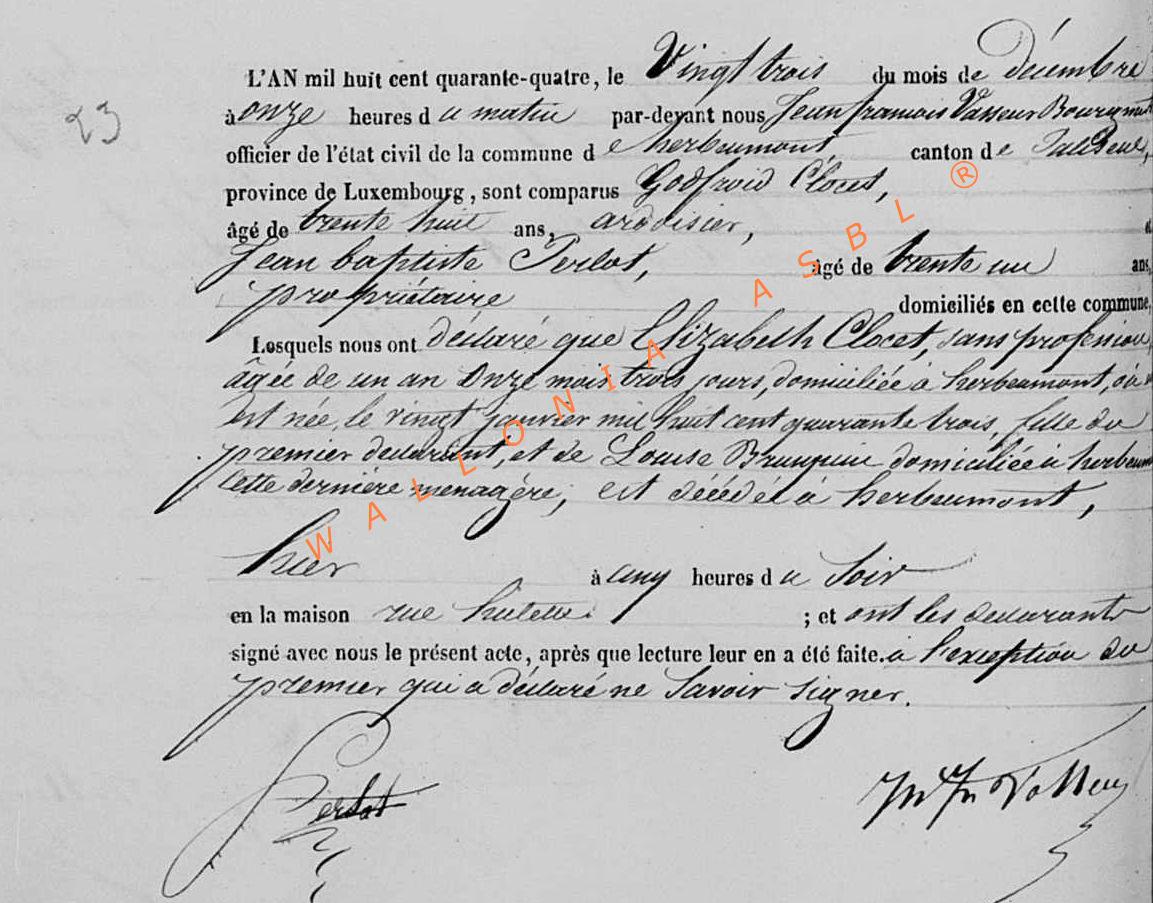 23
L'AN mil huit cent quarante-quatre, le Vingt trois du mois de décembre
à onze heures du matin par-devant nous Jean francois Vasseur Bourgmest
officier de l'état civil de la commune de herbeumont, canton de
province de Luxembourg, sont comparus Godfroid Clocet,
âgé de trente huit ans, ardoisier, et
Jean baptiste Perlot, âgé de trente un ans,
propriétaire domiciliés en cette commune,
Lesquels nous ont déclaré que Elizabeth Clocet, sans profession,
âgée de un an Onze mois trois jours, domiciliée à herbeumont, où
est née, le vingt janvier mil huit cent quarante trois, fille du
premier declarant, et de Louise domiciliée à herbeum
cette dernière menagère, est décédée à herbeumont,
hier à cinq heures du Soir
en la maison rue ; et ont les declarants
signé avec nous le présent acte, après que lecture leur en a été faite. à l'exception du
premier qui a déclaré ne Savoir signer.
Perlot
WALLONIA ASBL ®